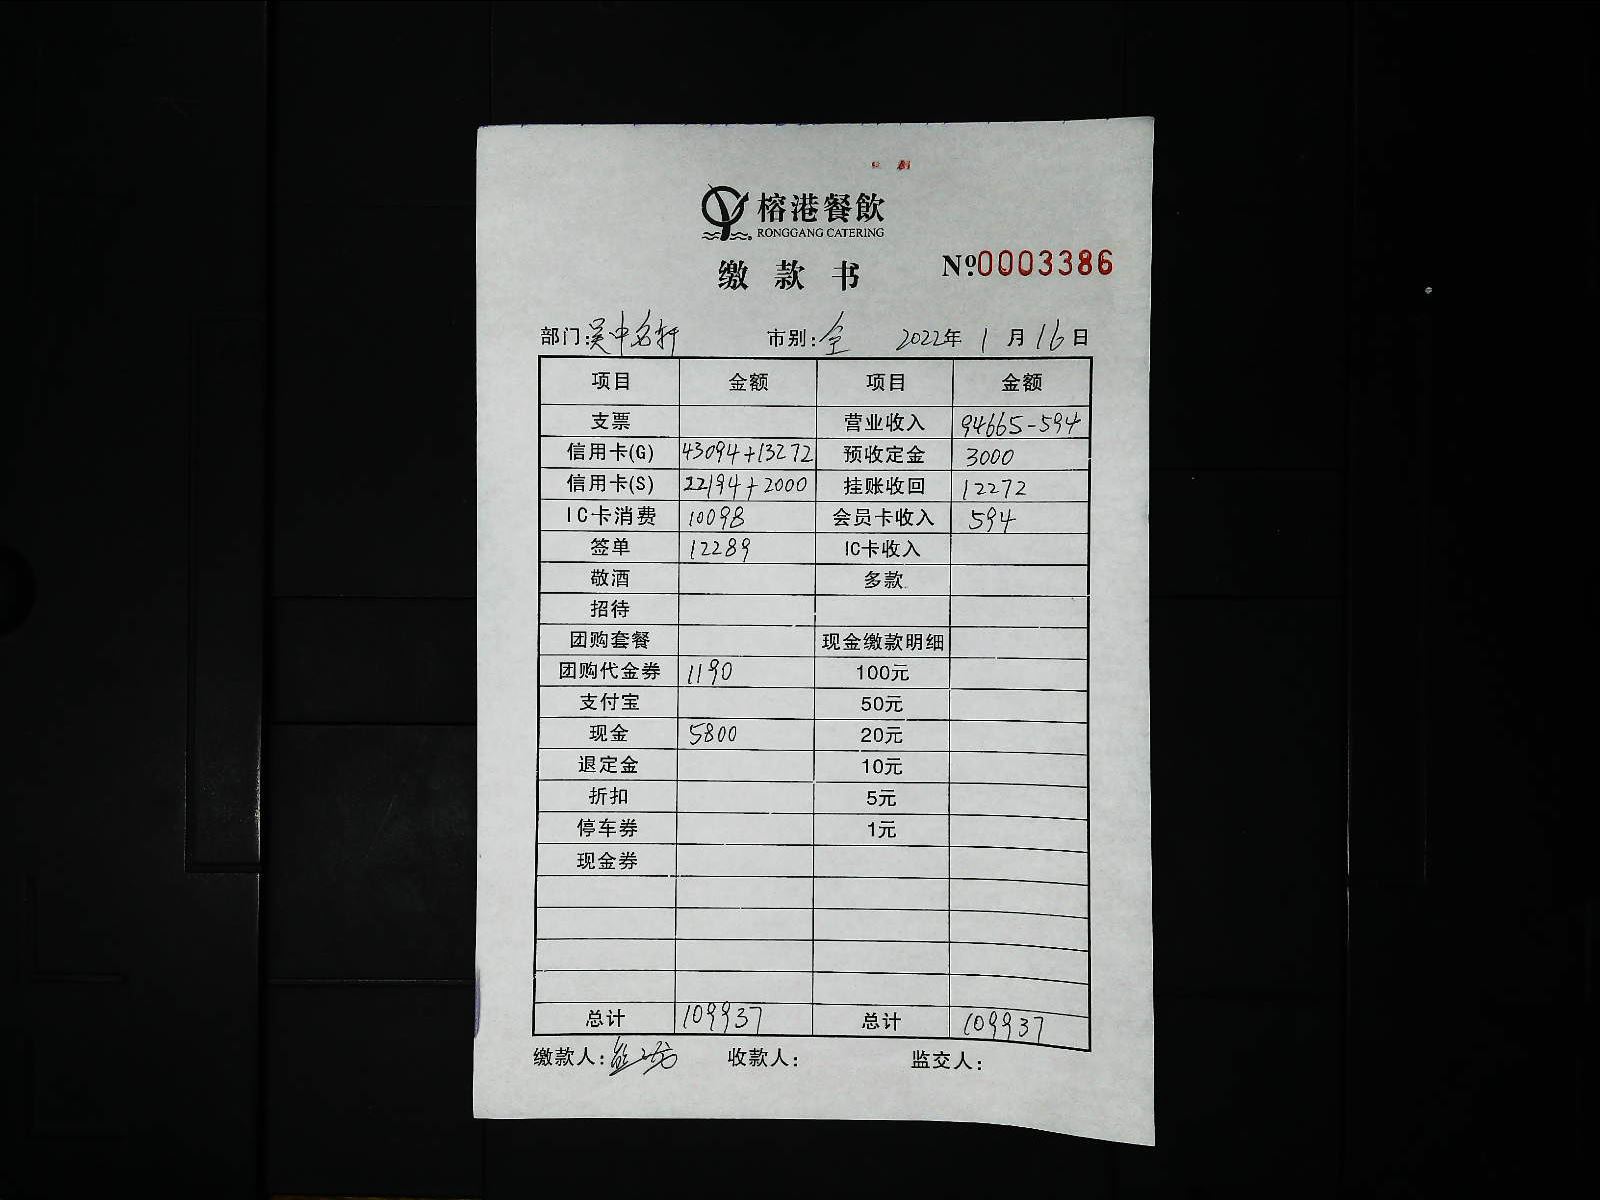 榕港餐飲
RONGGANG CATERING
缴款书 №0003386
部门:吴中名轩 市别:全 2022年1月16日
项目 金额 项目 金额
支票 营业收入 94665-594
信用卡(G) 43094+13272 预收定金 3000
信用卡(S) 22194+2000 挂账收回 12272
IC卡消费 10098 会员卡收入 594
签单 12289 IC卡收入
敬酒 多款
招待
团购套餐 现金缴款明细
团购代金券 1190 100元
支付宝 50元
现金 5800 20元
退定金 10元
折扣 5元
停车券 1元
现金券
总计 109937 总计 109937
缴款人: 收款人: 监交人: